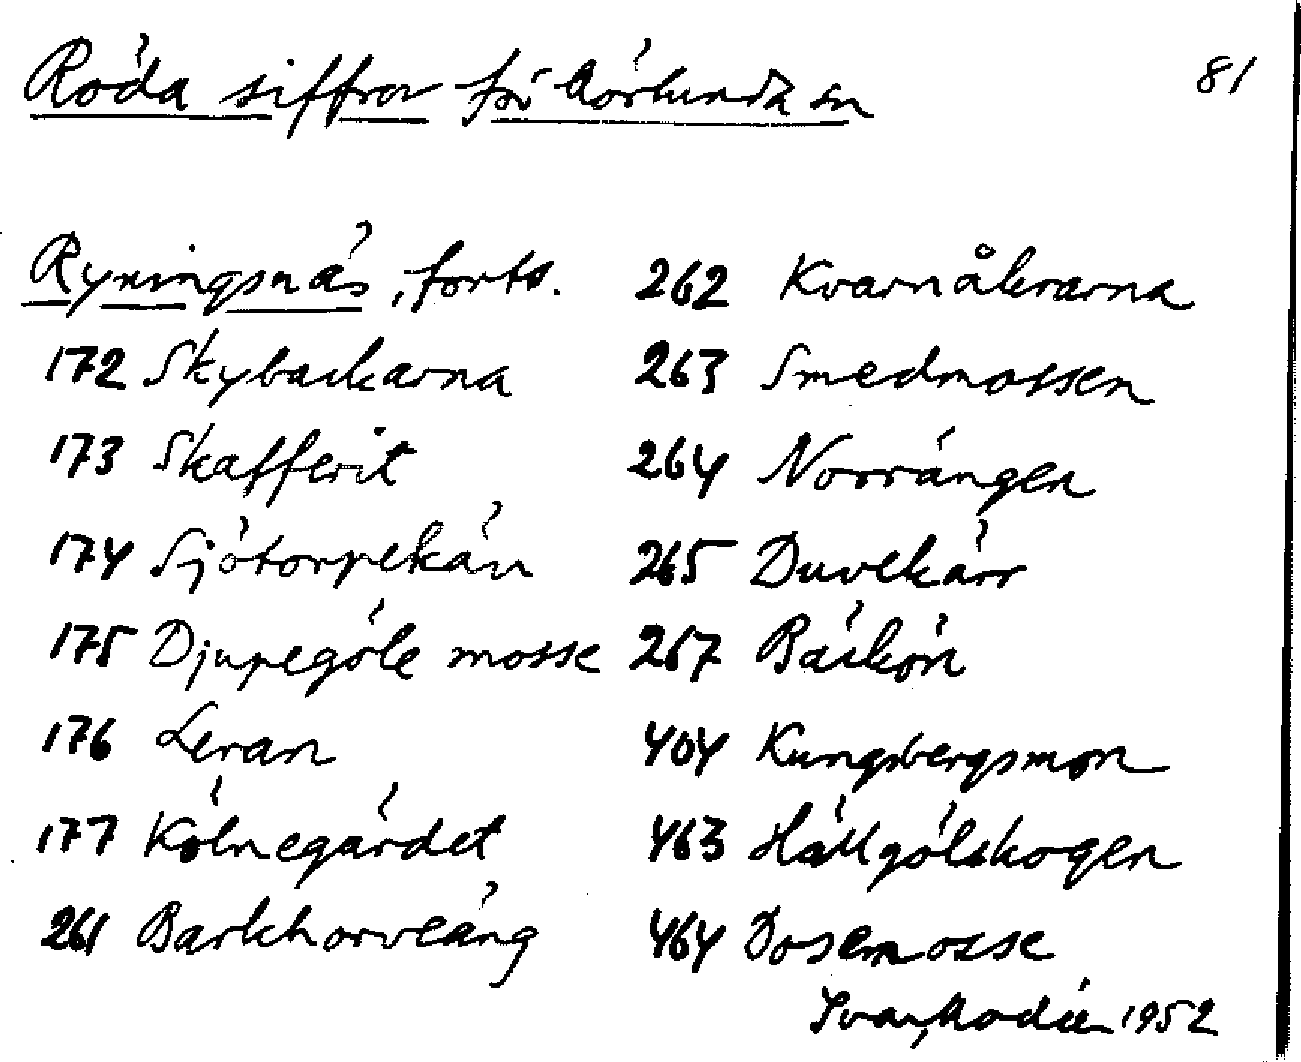 Röda siffror för Hörlunda sn
81
Ryningsnäs, forts.
172 Skybackarna
173 Skafferit
174 Sjötorpekän
175 Djupegöle mosse
176 Leran
177 Kölnegärdet
261 Barkhorveäng
262 Kvarnåkrarna
263 Smedmossen
264 Norrängen
265 Duvekärr
267 Bäckön
404 Kungsbergsmon
463 Hällgölskogen
464 Dosemosse
Ivar Modéer 1952